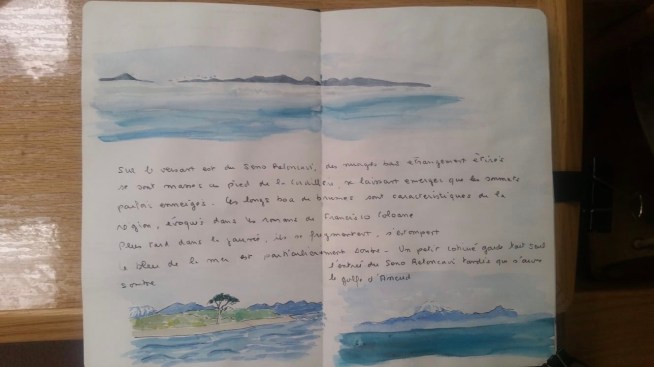 Sur le versant est du Seno Reloncavi, des nuages bas étrangement étirés
se sont massés au pied de la cordillère, ne laissant émerger que les sommets
parfois enneigés. Ces longs bancs de brumes sont caractéristiques de la
région, évoqués dans les romans de Francisco Coloane
Plus tard dans la journée, ils se fragmentent, s'estompent
le bleu de la mer est particulièrement sombre - Un petit garde tout seul
l'entrée du Seno Reloncavi tandis que s'ouvre
le golfe d'Ancud
sombre